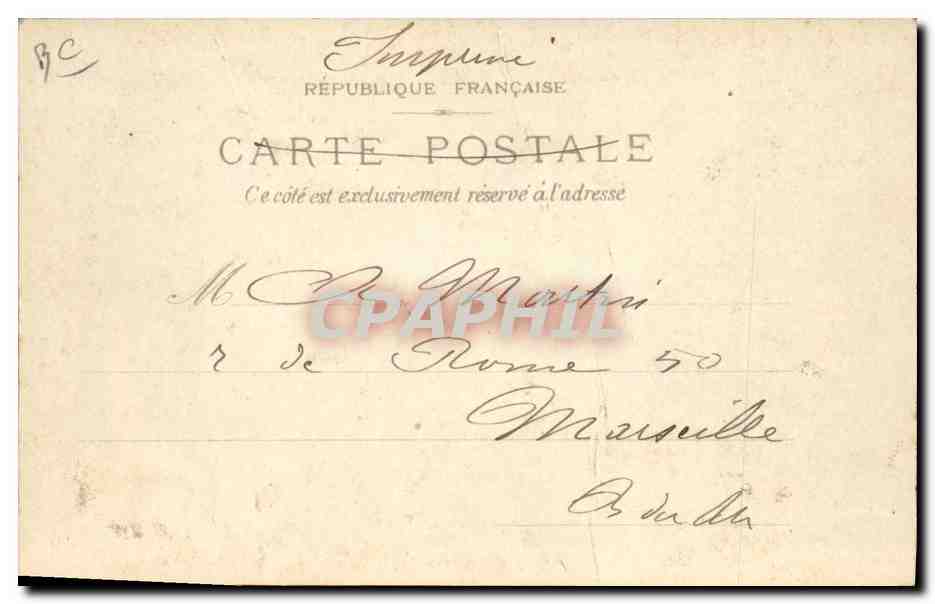 BC
Imprimé
RÉPUBLIQUE FRANÇAISE
CARTE POSTALE
Ce côté est exclusivement réservé à l'adresse
M Ch Martin
CPAPHIL
r de Rome 50
Marseille
Bs du Rh